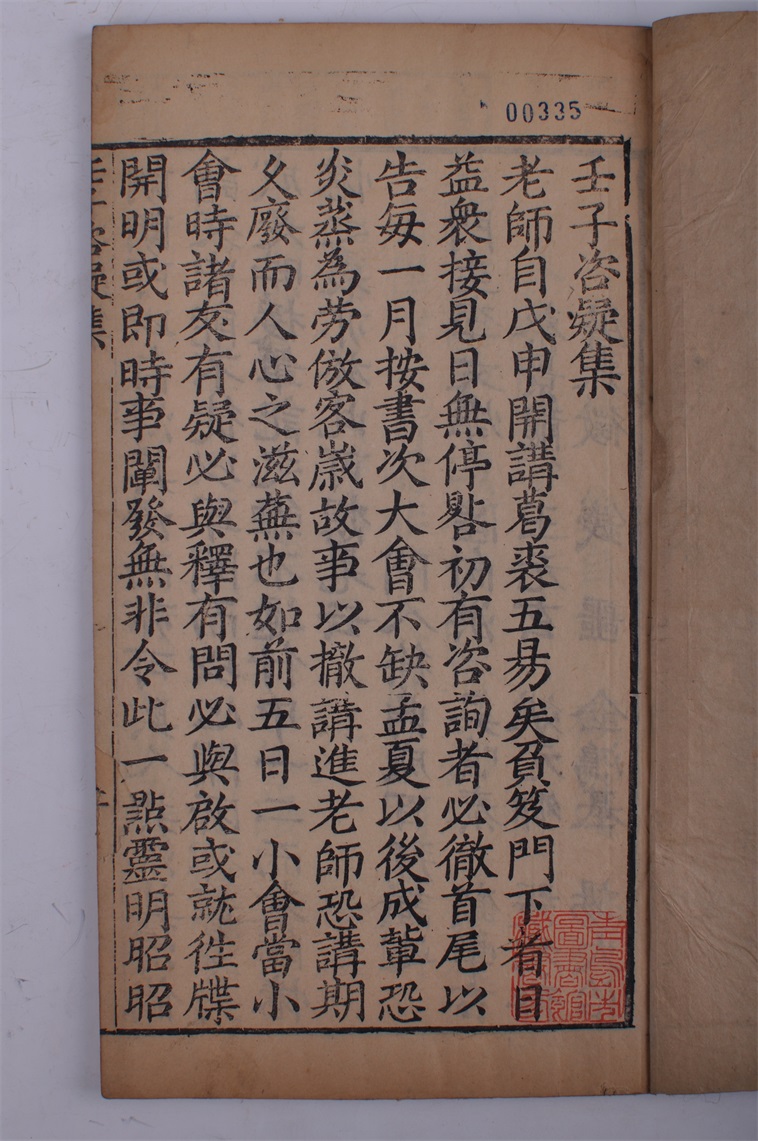 00335
壬子咨疑集
老師自戊申開講葛裘五易矣負笈門下者目
益衆接見日無停晷初有咨詢者必徹首尾以
告每一月按書次大會不缺孟夏以後成輩恐
炎蒸為勞倣客嵗故事以撤講進老師恐講期
久廢而人心之滋蕪也如前五日一小會當小
會時諸友有疑必與釋有問必與啟或就徃牒
開明或即時事闡發無非令此一㸃靈明昭昭
壬子咨疑集